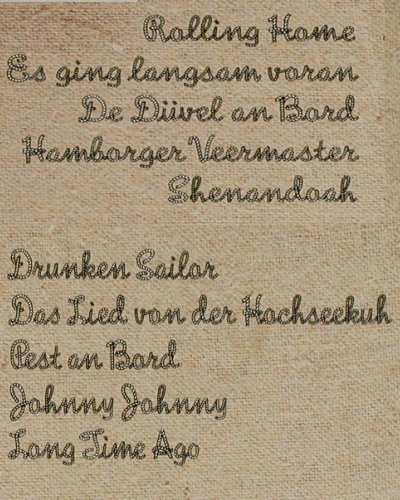 Rolling Home
Es ging langsam voran
De Düvel an Bord
Hamborger Veermaster
Shenandoah
Drunken Sailor
Das Lied von der Hochseekuh
Pest an Bord
Johnny Johnny
Long Time Ago